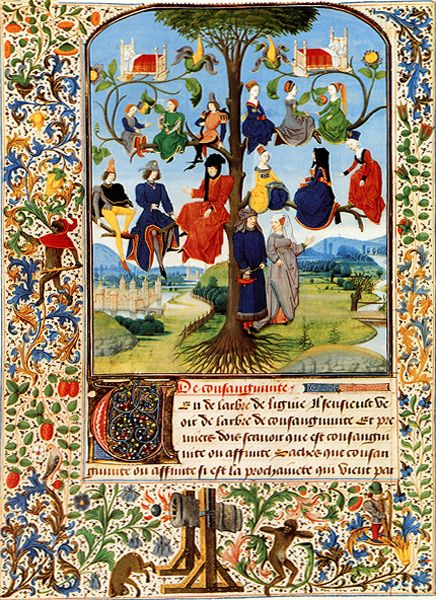 De consanguinite
En de larbre de lignie Il sensieust
oir de larbre de consanguinite Et pre
miere dois scauoir que est consangui
nite ou affinite Saches que consan
guinite ou affinite si est la prochainete qui vient par